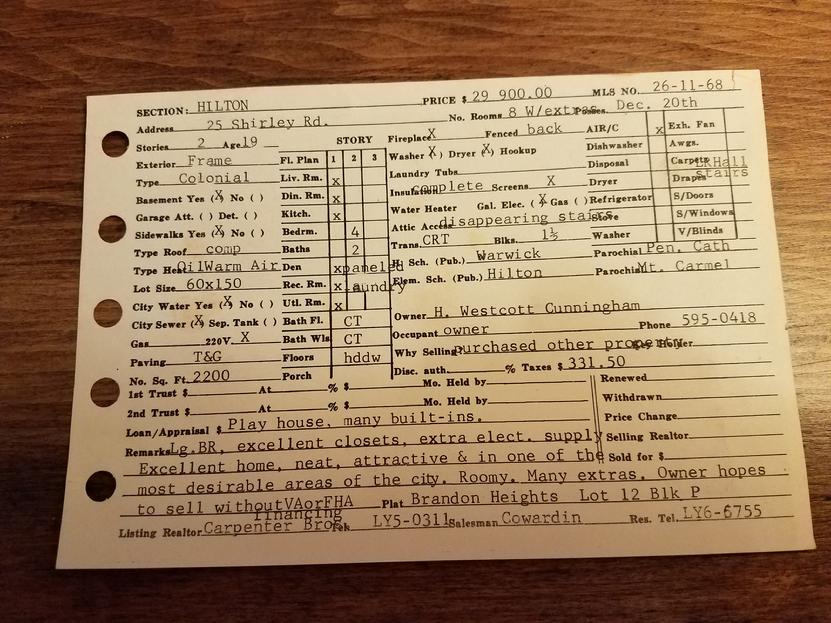 SECTION: HILTON PRICE $ 29 900.00 MLS NO. 26-11-68
Address 25 Shirley Rd. No. Rooms 8 W/extras Posses. Dec. 20th
Stories 2 Age 19 STORY Fireplace X Fenced back AIR/C x Exh. Fan
Exterior Frame Fl. Plan 1 2 3 Washer (X) Dryer (X) Hookup Dishwasher Awgs.
Type Colonial Liv. Rm. x Laundry Tubs Disposal Carpets LRHall stairs
Basement Yes (X) No ( ) Din. Rm. x Insulation complete Screens X Dryer Drapes
Garage Att. ( ) Det. ( ) Kitch. x Water Heater Gal. Elec. (X) Gas ( ) Refrigerator S/Doors
Sidewalks Yes (X) No ( ) Bedrm. 4 Attic Access disappearing stairs Stove S/Windows
Type Roof comp Baths 2 Trans. CRT Blks. 1½ Washer V/Blinds
Type Heat OilWarm Air Den x paneled H. Sch. (Pub.) Warwick Parochial Pen. Cath
Lot Size 60x150 Rec. Rm. x a laundry Elem. Sch. (Pub.) Hilton Parochial Mt. Carmel
City Water Yes (X) No ( ) Utl. Rm. x Owner H. Westcott Cunningham
City Sewer (X) Sep. Tank ( ) Bath Fl. CT Occupant owner Phone 595-0418
Gas 220V. X Bath Wls CT Why Selling purchased other property Key Holder
Paving T&G Floors hddw Disc. auth. % Taxes $ 331.50
No. Sq. Ft. 2200 Porch
1st Trust $ At % $ Mo. Held by Renewed
2nd Trust $ At % $ Mo. Held by Withdrawn
Loan/Appraisal $ Play house, many built-ins. Price Change
Remarks Lg.BR, excellent closets, extra elect. supply Selling Realtor
Excellent home, neat, attractive & in one of the Sold for $
most desirable areas of the city. Roomy. Many extras. Owner hopes
to sell withoutVAorFHA financing Plat Brandon Heights Lot 12 Blk P
Listing Realtor Carpenter Bros. Tel. LY5-0311 Salesman Cowardin Res. Tel. LY6-6755